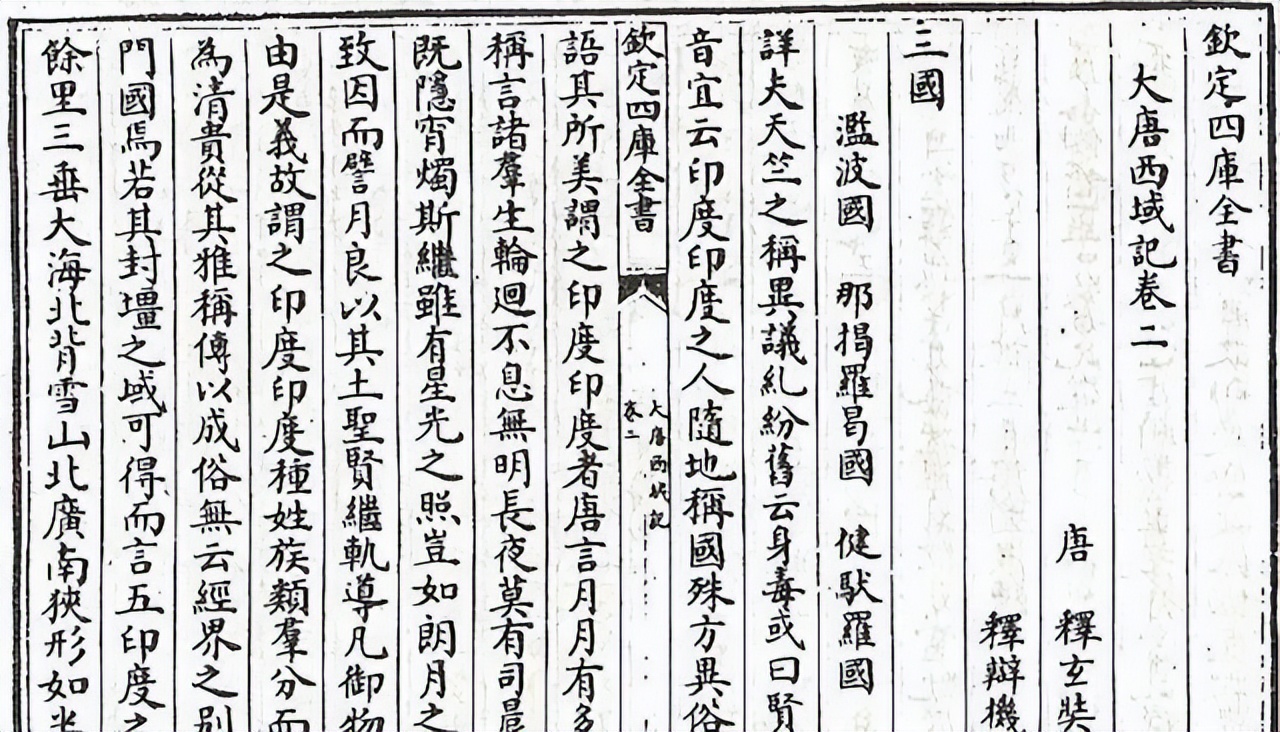 欽定四庫全書
大唐西域記卷二
唐 釋玄奘
釋辯機
三國
濫波國 那揭羅曷國 健馱羅國
詳夫天竺之稱異議糺紛舊云身毒或曰賢
音宜云印度印度之人隨地稱國殊方異俗
欽定四庫全書
大唐西域記
卷二
語其所美謂之印度印度者唐言月月有多
稱言諸羣生輪迴不息無明長夜莫有司晨
既隱宵燭斯繼雖有星光之照豈如朗月之
致因而譬月良以其土聖賢繼軌導凡御物
由是義故謂之印度印度種姓族類羣分而
為清貴從其雅稱傳以成俗無云經界之別
門國焉若其封壃之域可得而言五印度之
餘里三垂大海北背雪山北廣南狹形如半